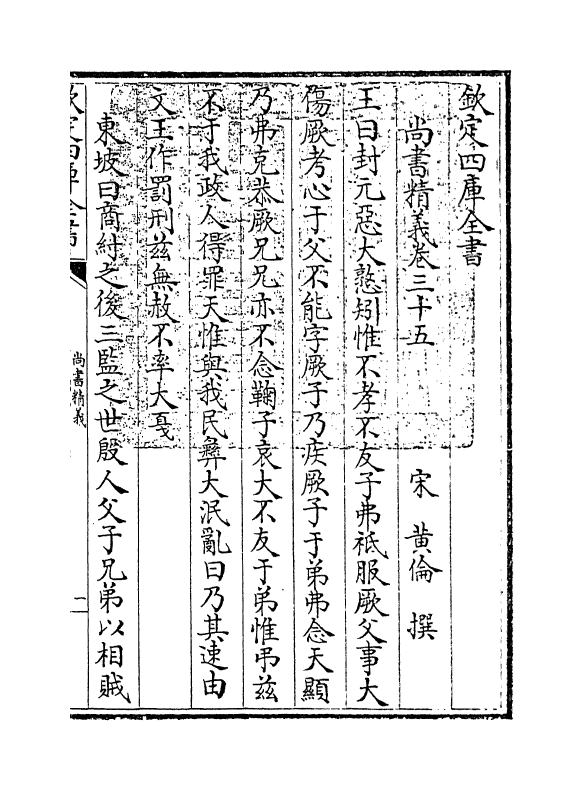 欽定四庫全書
尚書精義卷三十五　宋　黃倫　撰
王曰封元惡大憝矧惟不孝不友子弗祗服厥父事大
傷厥考心于父不能字厥子乃疾厥子于弟弗念天顯
乃弗克恭厥兄兄亦不念鞠子哀大不友于弟惟弔茲
不于我政人得罪天惟與我民彝大泯亂曰乃其速由
文王作罰刑茲無赦不率大戛
東坡曰商紂之後三監之世殷人父子兄弟以相賊
欽定四庫全書
尚書精義